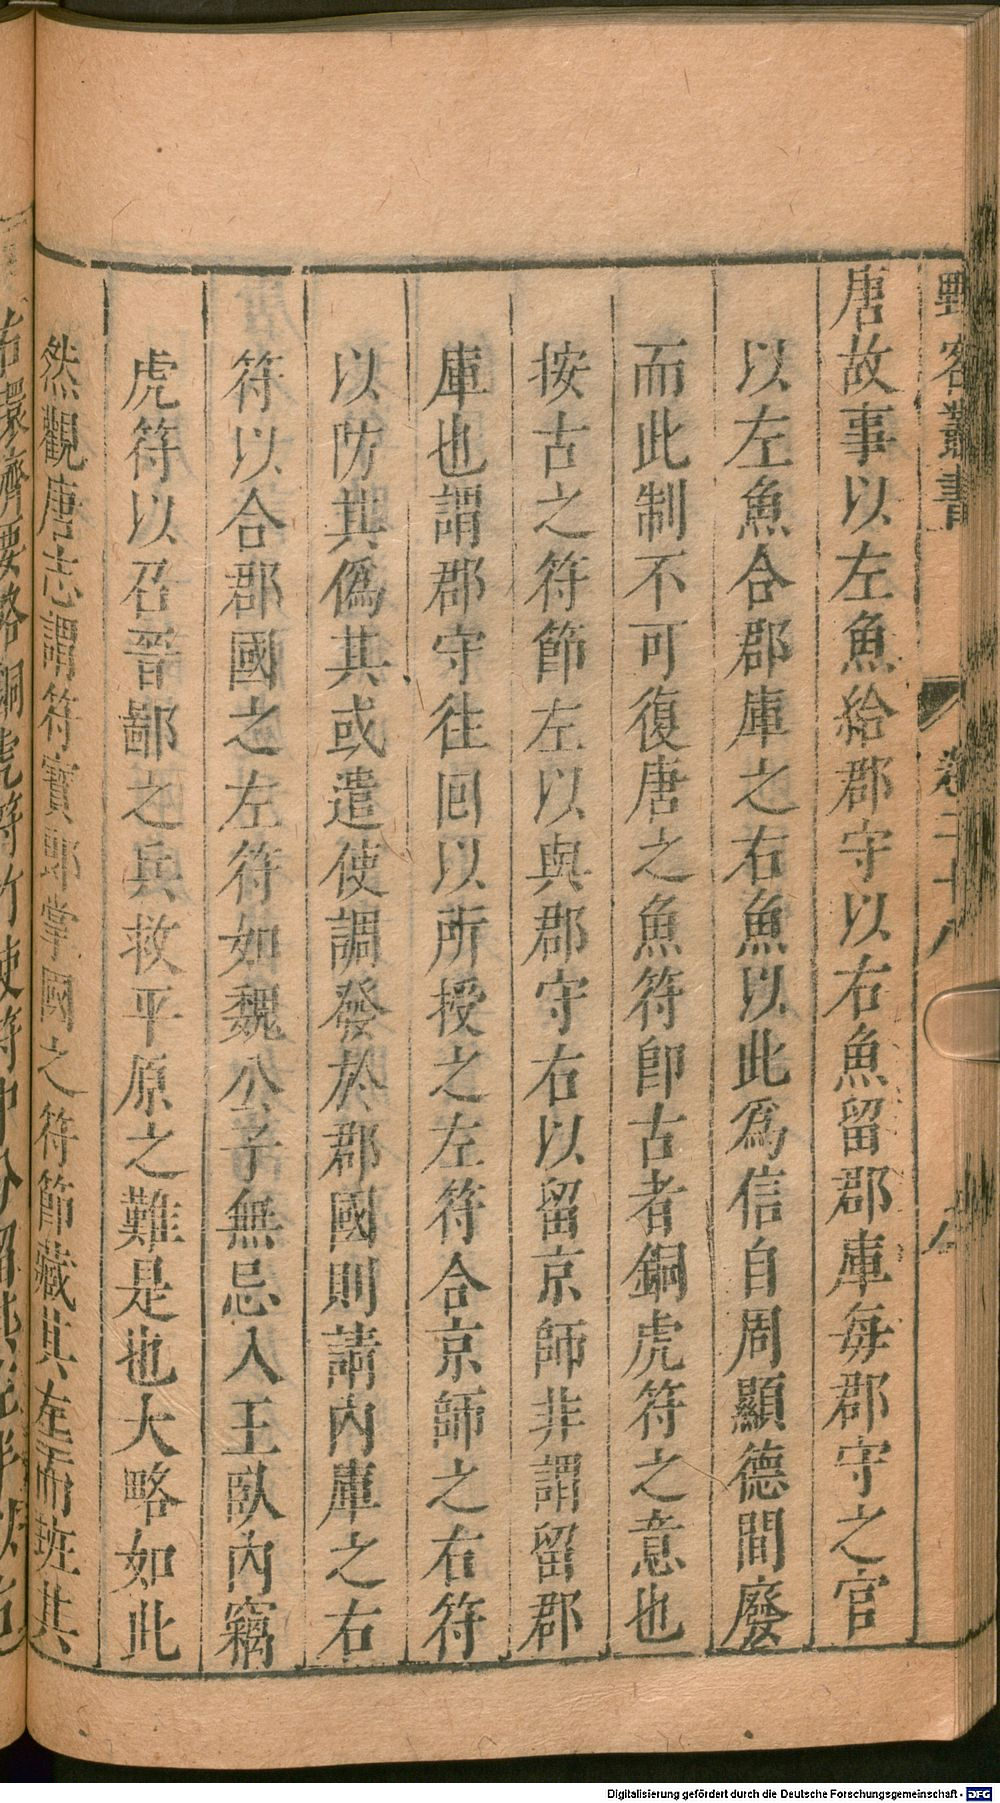 野客叢書
卷二十八
唐故事以左魚給郡守以右魚留郡庫每郡守之官
以左魚合郡庫之右魚以此爲信自周顯德間廢
而此制不可復唐之魚符卽古者銅虎符之意也
按古之符節左以與郡守右以留京師非謂留郡
庫也謂郡守往回以所授之左符合京師之右符
以防其僞其或遣使調發於郡國則請內庫之右
符以合郡國之左符如魏公子無忌入王臥內竊
虎符以召晉鄙之兵救平原之難是也大略如此
然觀唐志謂符寶郎掌國之符節藏其左而班其
Digitalisierung gefördert durch die Deutsche Forschungsgemeinschaft - DFG